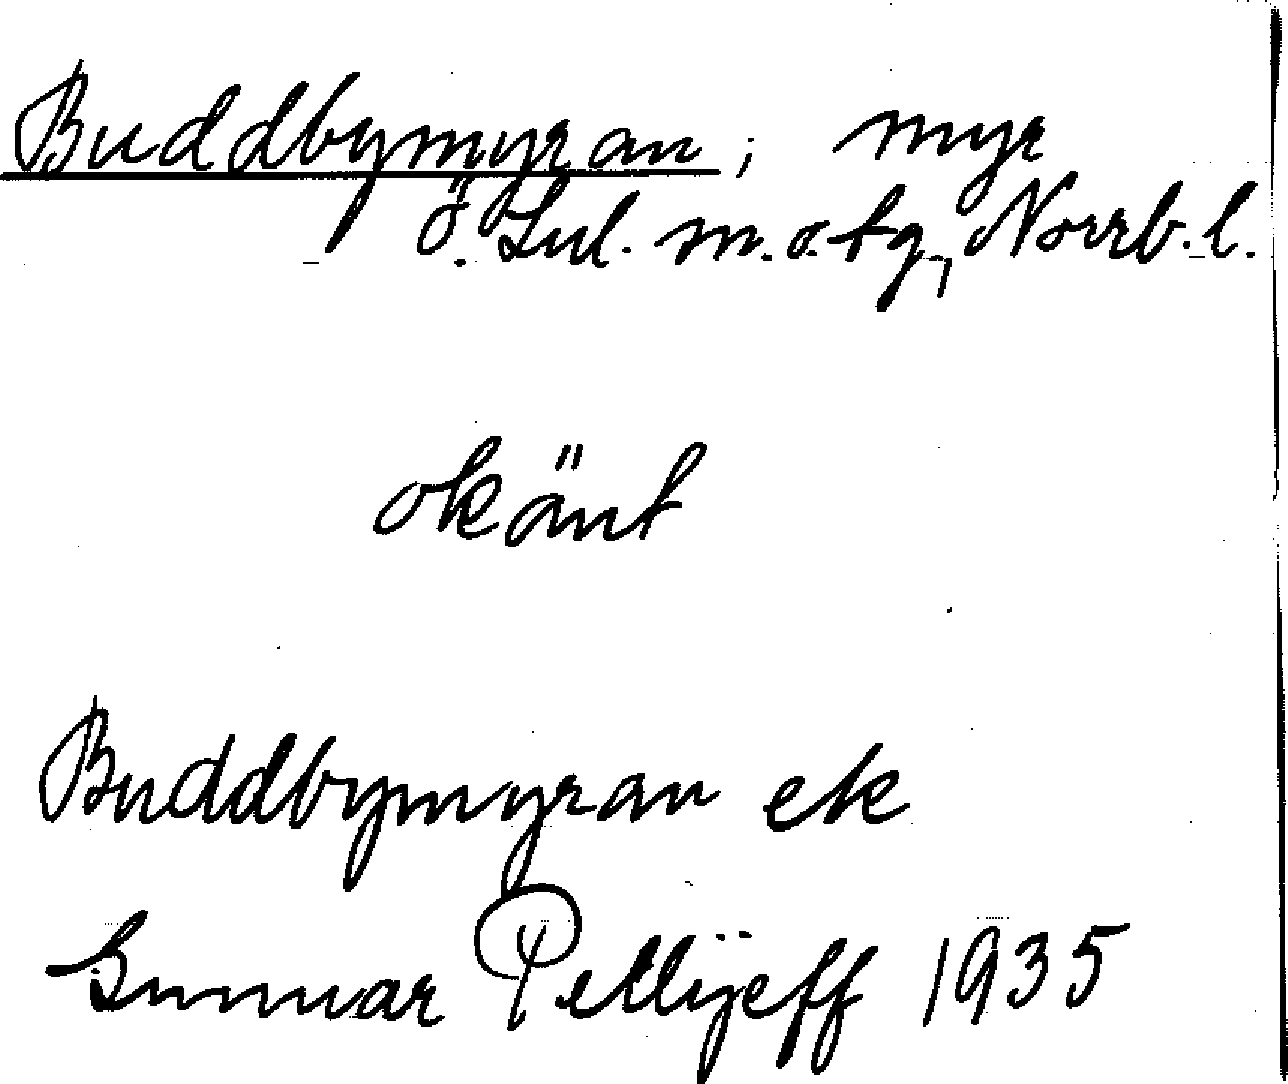 Buddbymyran, myr
Ö. Lul. m. o. tg, Norrb. l.
okänt
Buddbymyran ek
Gunnar Pellijeff 1935